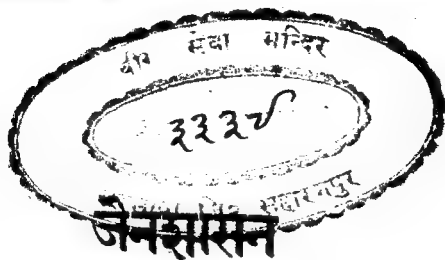 वीर सेवा मन्दिर
३३३८
सहारनपुर
जैनशासन